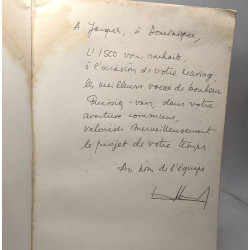 A Jacques, à Dominique,
L'ISCO vous souhaite,
à l'occasion de votre mariage,
les meilleurs vœux de bonheur
Puissiez-vous, dans votre
aventure commune,
valoriser merveilleusement
le projet de votre temps
Au nom de l'équipe